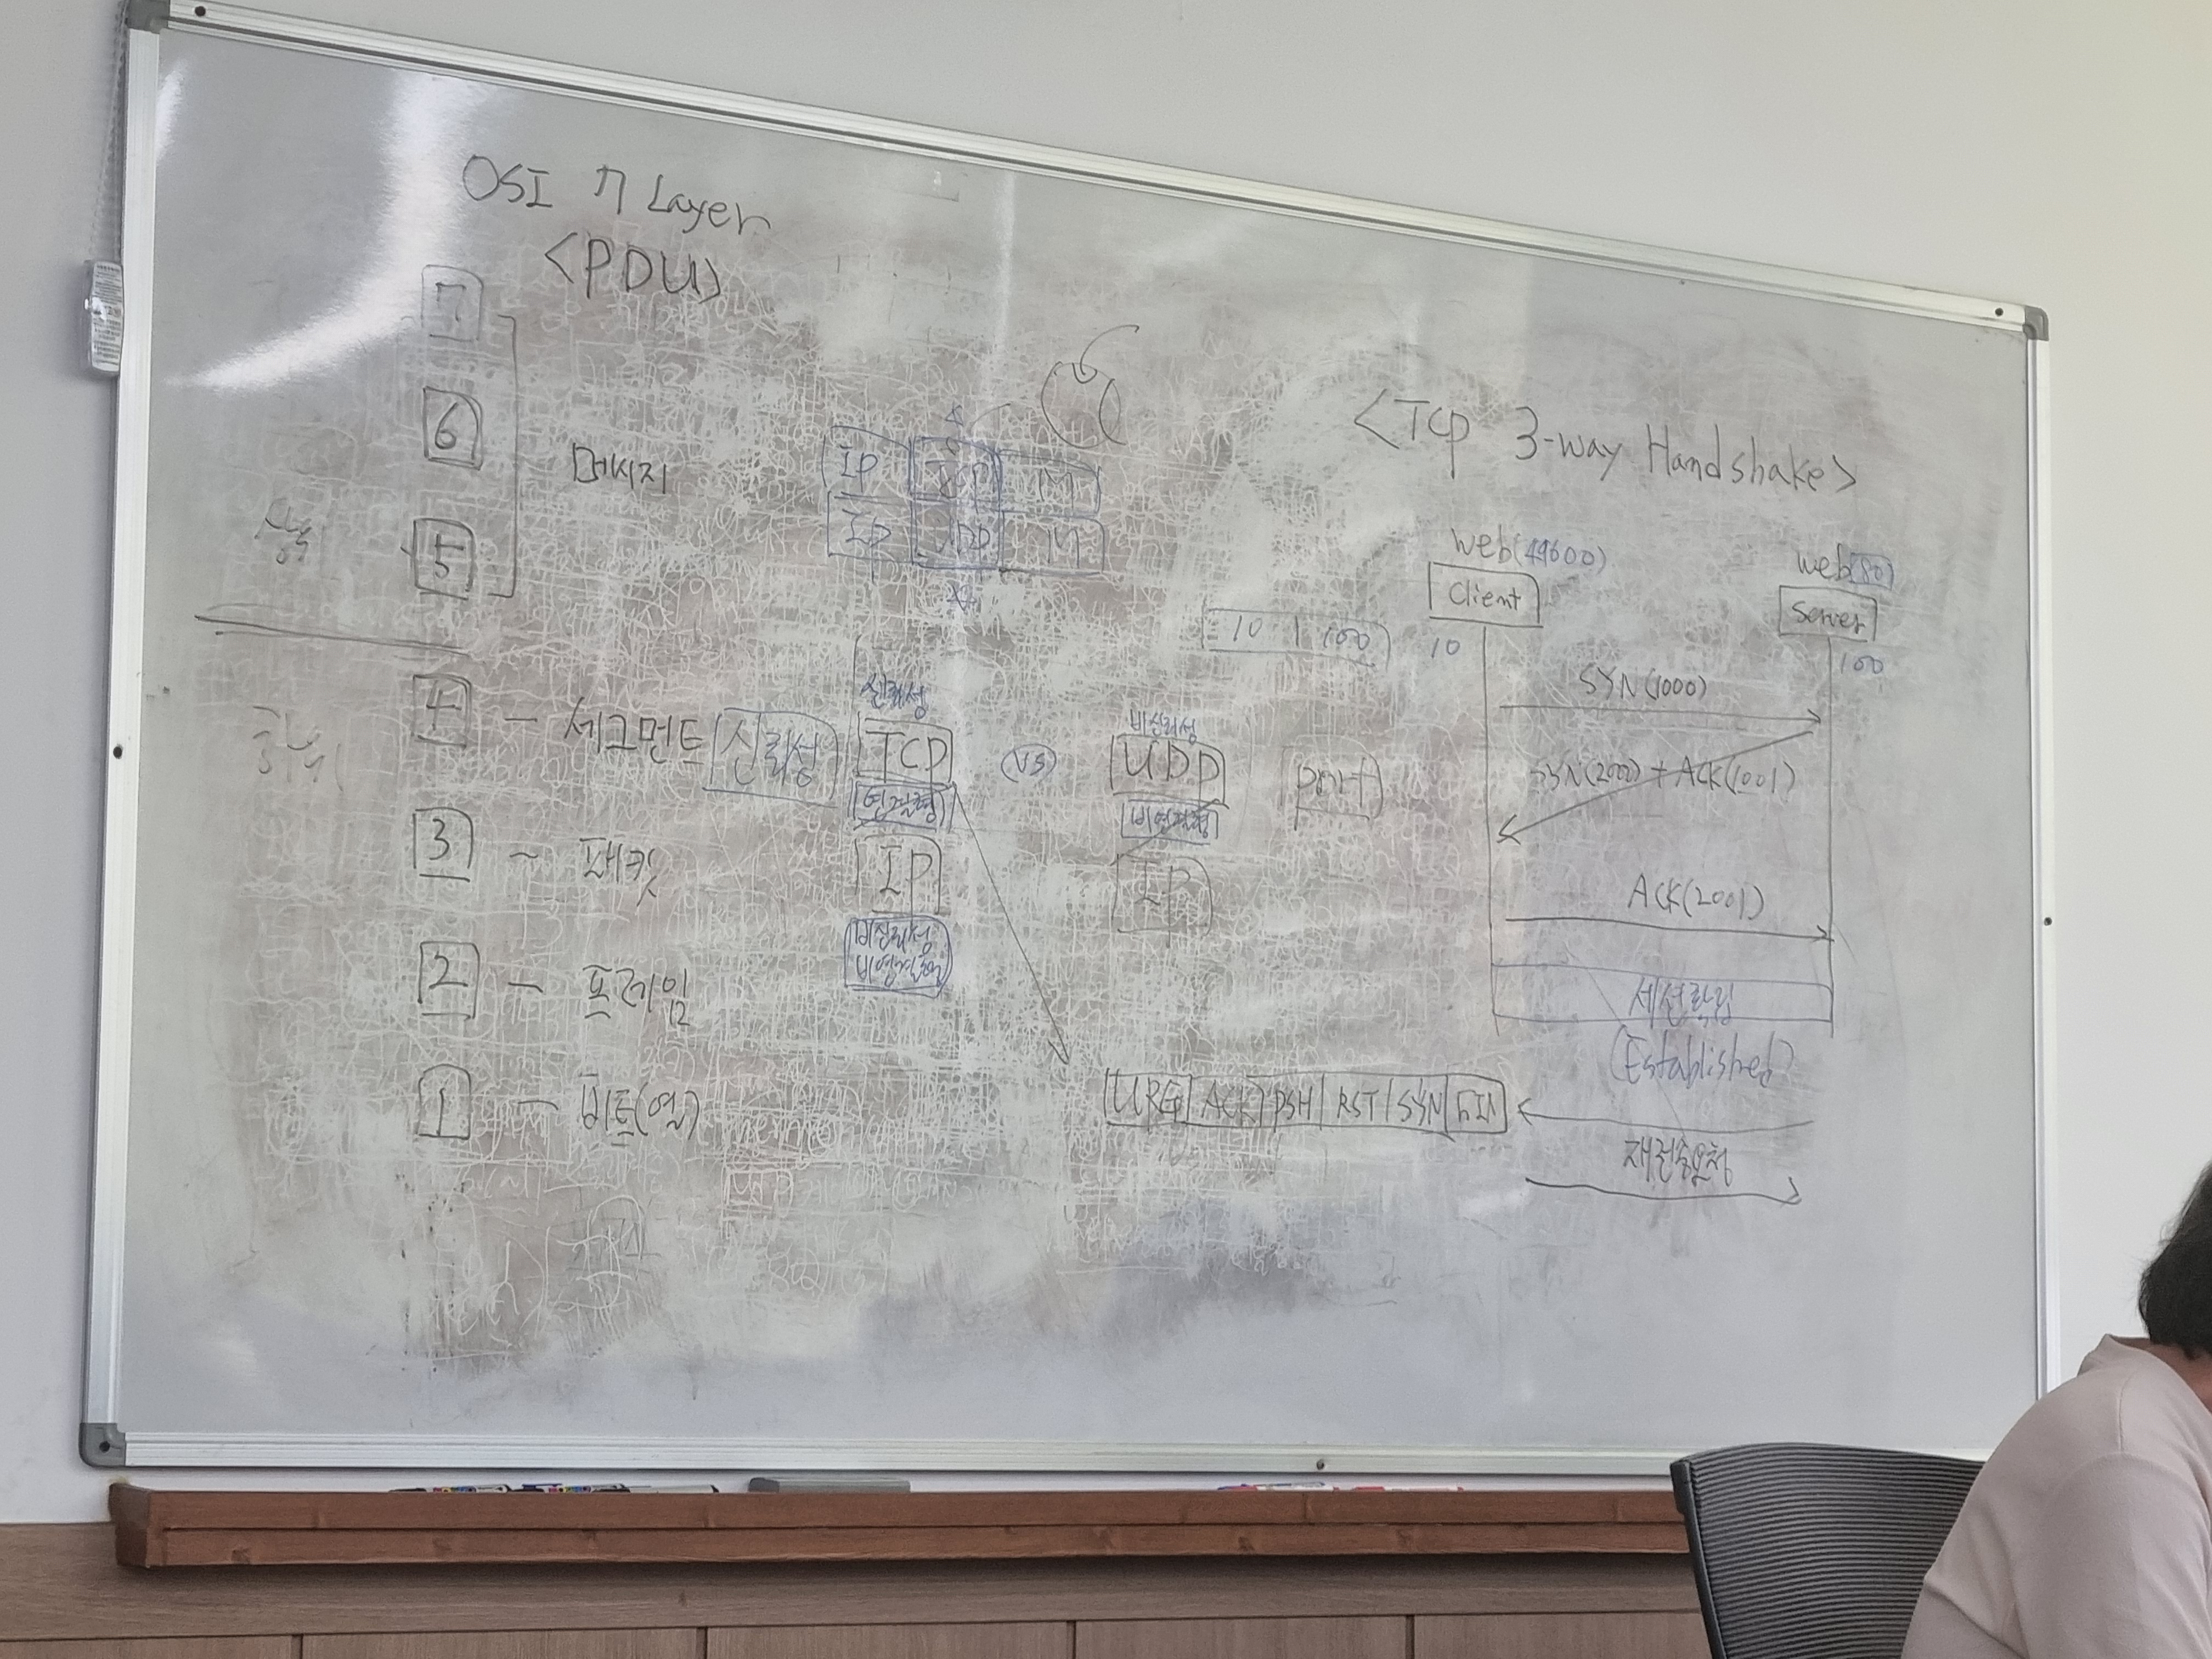 OSI 7 Layer
<PDU>
7
6
5
메시지
상위
하위
4 - 세그먼트 신뢰성
3 - 패킷
2 - 프레임
1 - 비트(열)
IP TCP M
IP UDP M
신뢰성
TCP
연결형
IP
비신뢰성
비연결형
(VS)
비신뢰성
UDP
비연결형
IP
port
URG ACK PSH RST SYN FIN
<TCP 3-way Handshake>
Web(49600)
Client
Web(80)
Server
10 | 100
10
100
SYN(1000)
SYN(2000) + ACK(1001)
ACK(2001)
세션확립
(Established)
재전송요청